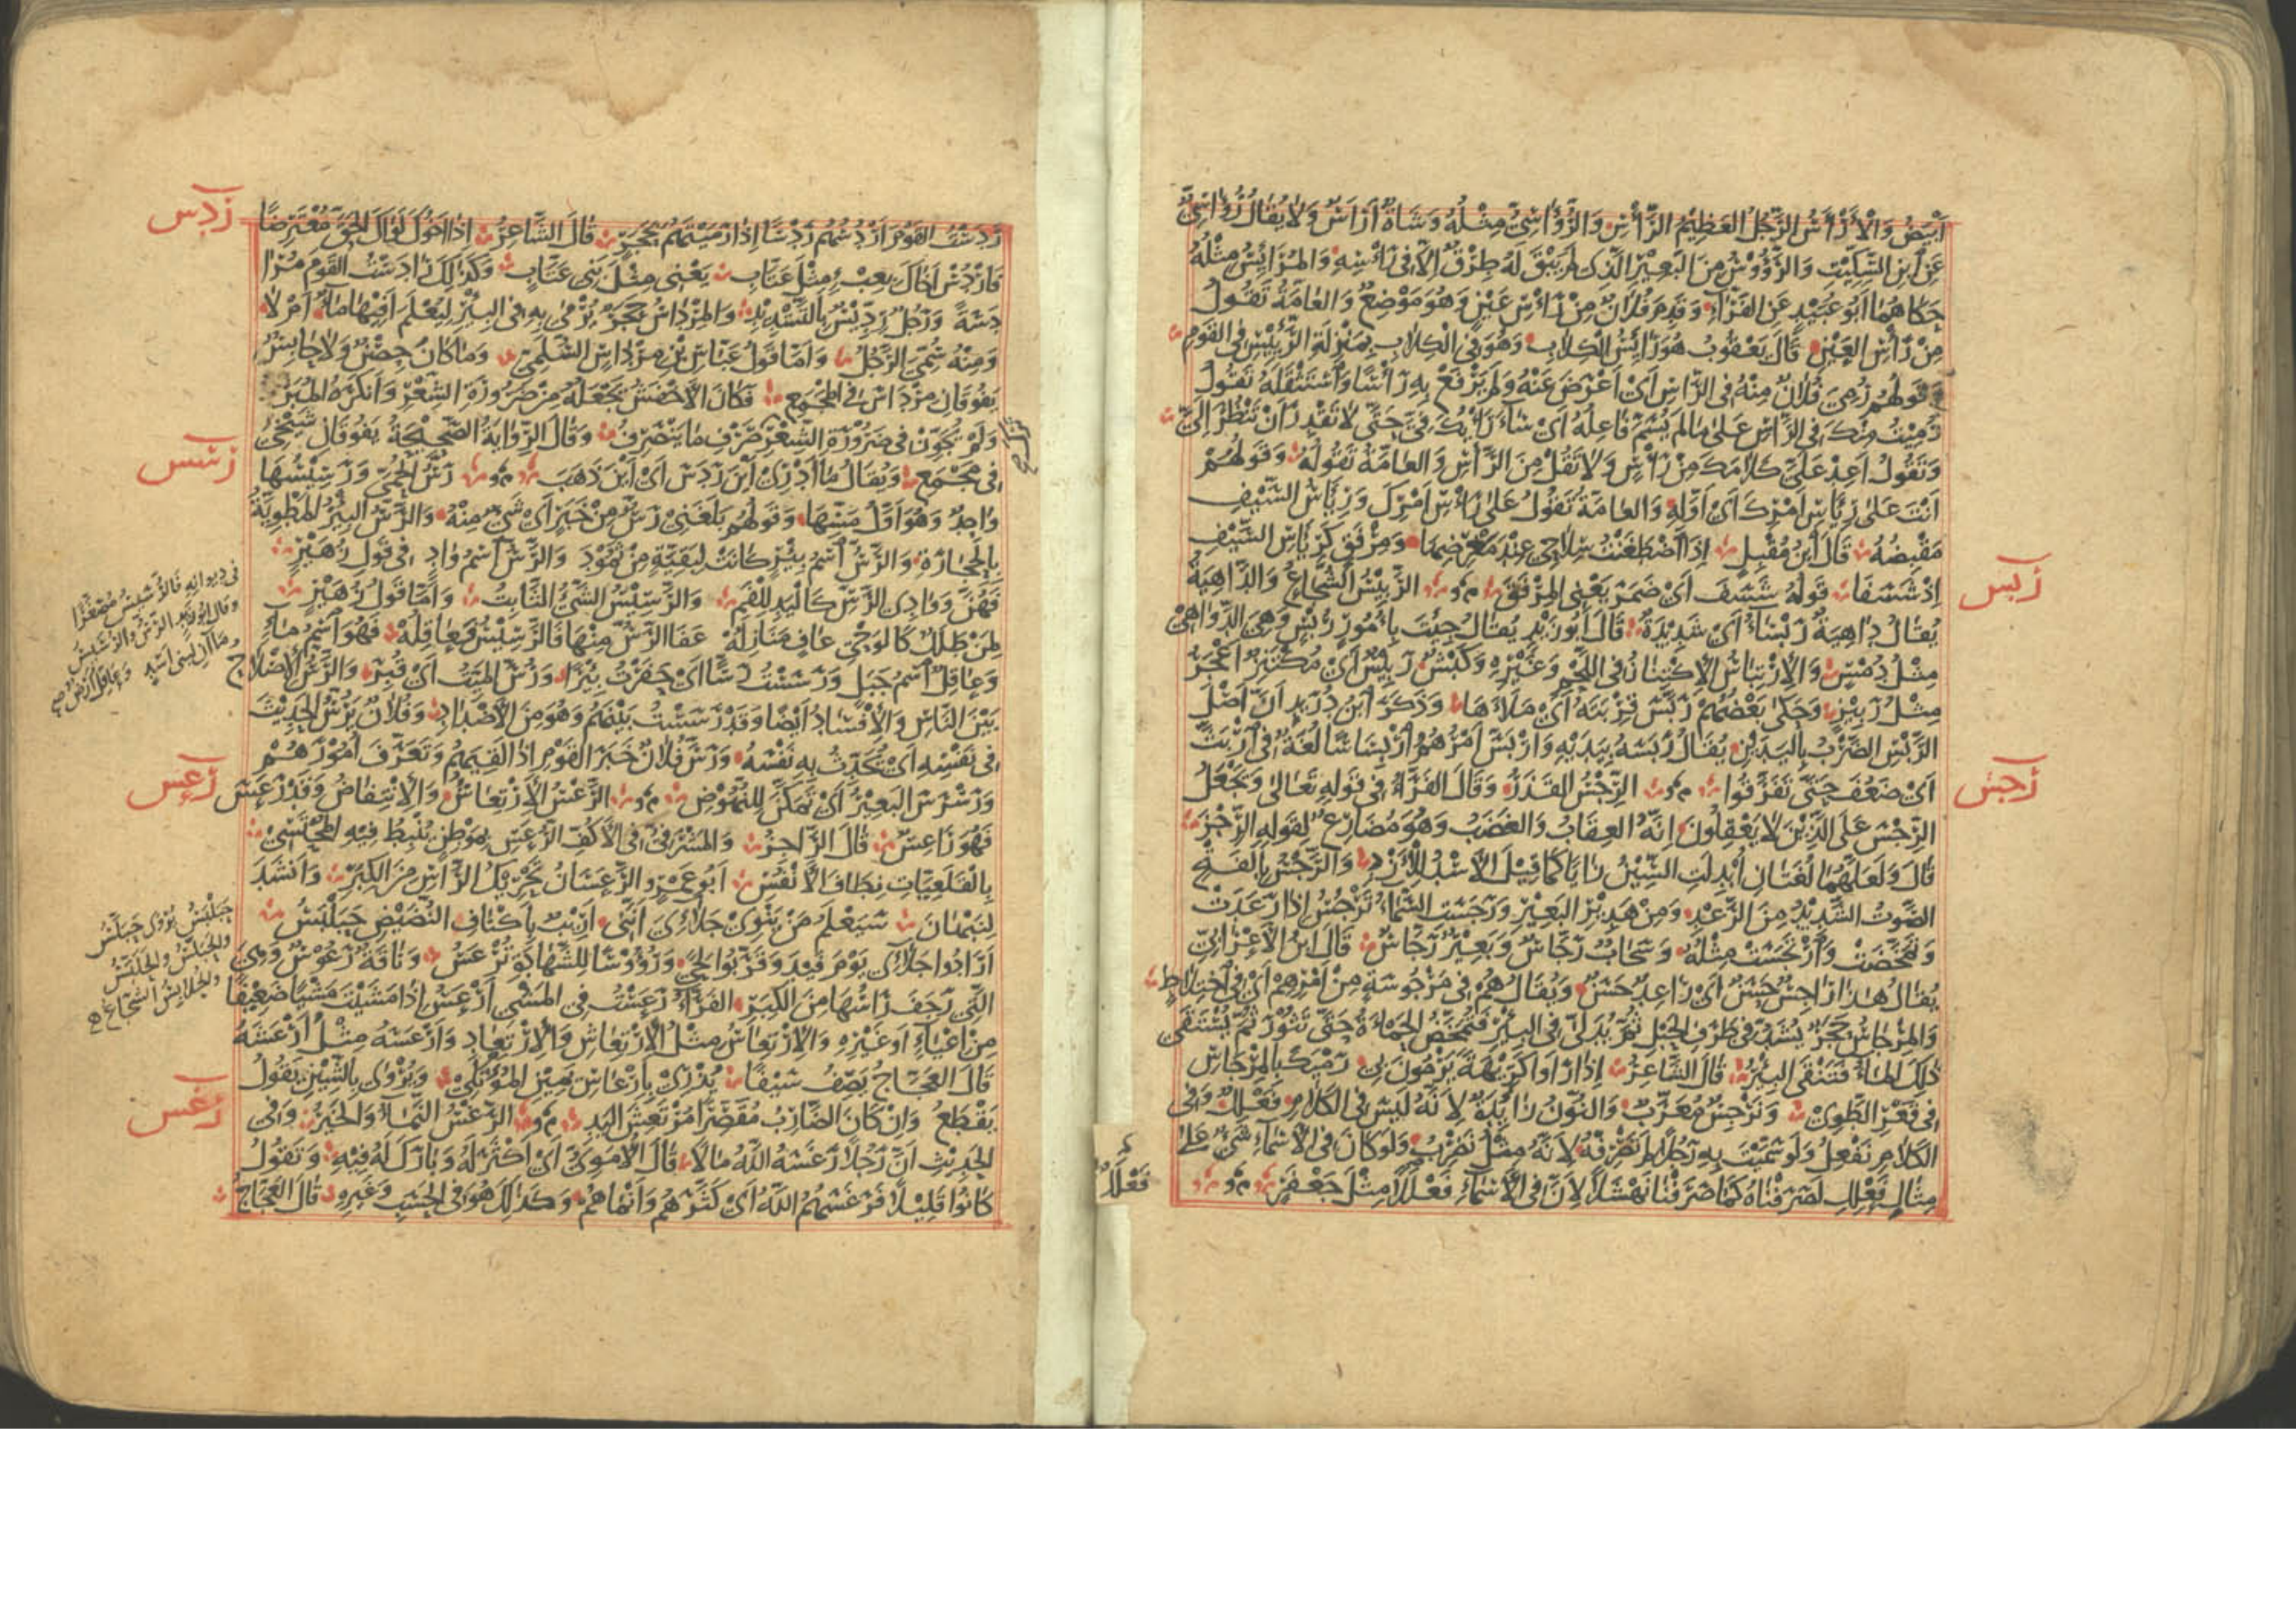 اَبْيَضُ وَالْاَرْأَسُ الرَّجُلُ العَظِيْمُ الرَّأْسِ وَالرُّؤَاسِىُّ مِثْلُهُ وَشَاةٌ اَرْاَسُ وَلَا يُقَالُ رُؤَاسِىٌّ
عَنِ ابْنِ السِّكِّيْتِ وَالرَّؤُوْسُ مِنَ البَعِيْرِ الَّذِى لَمْ يَبْقَ لَهُ طِرْقٌ اِلَّا فِى رَاْسِهِ وَالمُرَائِسُ مِثْلُهُ
حَكَاهُمَا اَبُو عُبَيْدٍ عَنِ الفَرَّاءِ وَقَدِمَ فُلَانٌ مِنْ رَأْسِ عَيْنٍ وَهُوَ مَوْضِعٌ وَالعَامَّةُ تَقُولُ
مِنْ رَأْسِ العَيْنِ قَالَ يَعْقُوبُ هُوَ رَائِسُ الكِلَابِ وَهُوَ فِى الْكِلَابِ بِمَنْزِلَةِ الرَّئِيْسِ فِى القَوْمِ
وَقَوْلُهُمْ رُمِىَ فُلَانٌ مِنْهُ فِى الرَّاسِ اَىْ اَعْرَضَ عَنْهُ وَلَمْ يَرْفَعْ بِهِ رَأْسًا وَاسْتَثْقَلَهُ تَقُولُ
رُمِيْتُ مِنْكَ فِى الرَّاسِ عَلَى مَا لَمْ يُسَمَّ فَاعِلُهُ اَىْ سَاءَ رَأْيُكَ فِىَّ حَتَّى لَا تَقْدِرَ اَنْ تَنْظُرَ اِلَىَّ
وَتَقُولُ اَعِدْ عَلَىَّ كَلَامَكَ مِنْ رَأْسٍ وَلَا تَقُلْ مِنَ الرَّأْسِ وَالعَامَّةُ تَقُولُهُ وَقَوْلُهُمْ
اَنْتَ عَلَى رِيَاسِ اَمْرِكَ اَىْ اَوَّلِهِ وَالعَامَّةُ تَقُولُ عَلَى رَأْسِ اَمْرِكَ وَرِيَاسُ السَّيْفِ
مَقْبِضُهُ قَالَ ابْنُ مُقْبِلٍ اِذَا اضْطَغَنْتُ سِلَاحِى عِنْدَ مَغْرِضِهَا وَمِرْفَقٍ كَرِيَاسِ السَّيْفِ
اِذْ شَسَفَا قَوْلُهُ شَسَفَ اَىْ ضَمَرَ يَعْنِى المِرْفَقَ الرَّبِيْسُ الشُّجَاعُ وَالدَّاهِيَةُ
يُقَالُ دَاهِيَةٌ رَبْسَاءُ اَىْ شَدِيْدَةٌ قَالَ اَبُو زَيْدٍ يُقَالُ جِئْتَ بِاُمُورٍ رُبْسٍ وَهِىَ الدَّوَاهِىْ
مِثْلُ دُمْسٍ وَالاِرْتِبَاسُ الاِكْتِنَازُ فِى اللَّحْمِ وَغَيْرِهِ وَكَبْشٌ رَبِيْسٌ اَىْ مُكْتَنِزٌ اَعْجَرُ
مِثْلُ رَبِيْزٍ وَحَكَى بَعْضُهُمْ رَبَسَ قِرْبَتَهُ اَىْ مَلَأَهَا وَذَكَرَ ابْنُ دُرَيْدٍ اَنَّ اَصْلَ
الرَّبْسِ الضَّرْبُ بِاليَدَيْنِ يُقَالُ رَبَسَهُ بِيَدَيْهِ وَارْبَسَّ اَمْرُهُمْ ارْبِسَاسًا لُغَةٌ فِى ارْبَثَّ
اَىْ ضَعُفَ حَتَّى تَفَرَّقُوا الرِّجْسُ القَذَرُ وَقَالَ الفَرَّاءُ فِى قَوْلِهِ تَعَالَى وَيَجْعَلُ
الرِّجْسَ عَلَى الَّذِيْنَ لَا يَعْقِلُونَ اِنَّهُ العِقَابُ وَالغَضَبُ وَهُوَ مُضَارِعٌ لِقَوْلِهِ الرِّجْزَ
قَالَ وَلَعَلَّهُمَا لُغَتَانِ اُبْدِلَتِ السِّيْنُ زَايًا كَمَا قِيْلَ الاَسْدُ لِلْاَزْدِ وَالرَّجْسُ بِالفَتْحِ
الصَّوْتُ الشَّدِيْدُ مِنَ الرَّعْدِ وَمِنْ هَدِيْرِ البَعِيْرِ وَرَجَسَتِ السَّمَاءُ تَرْجُسُ اِذَا رَعَدَتْ
وَتَمَخَّضَتْ وَارْتَجَسَتْ مِثْلُهُ وَسَحَابٌ رَجَّاسٌ وَبَعِيْرٌ رَجَّاسٌ قَالَ ابْنُ الاَعْرَابِىِّ
يُقَالُ هَذَا رَاجِسٌ حَسَنٌ اَىْ رَاعِدٌ حَسَنٌ وَيُقَالُ هُمْ فِى مَرْجُوسَةٍ مِنْ اَمْرِهِمْ اَىْ فِى اخْتِلَاطٍ
وَالمِرْجَاسُ حَجَرٌ يُشَدُّ فِى طَرَفِ الحَبْلِ ثُمَّ يُدَلَّى فِى البِيْرِ فَتُمْخَضُ الحَمْأَةُ حَتَّى تَثُوْرَ ثُمَّ يُسْتَقَى
ذَلِكَ المَاءُ فَتَنْقَى البِيْرُ قَالَ الشَّاعِرُ اِذَا رَأَوْا كَرِيْهَةً يَرْمُونَ بِى رَمْيَكَ بِالمِرْجَاسِ
فِى قَعْرِ الطَّوِىْ وَنَرْجِسٌ مُعَرَّبٌ وَالنُّوْنُ زَايِدَةٌ لِاَنَّهُ لَيْسَ فِى الكَلَامِ فَعْلِلٌ وَفِى
الكَلَامِ نَفْعِلُ وَلَوْ سَمَّيْتَ بِهِ رَجُلًا لَمْ تَصْرِفْهُ لِاَنَّهُ مِثْلُ نَضْرِبُ وَلَوْ كَانَ فِى الاَسْمَاءِ شَىْءٌ عَلَى
مِثَالِ فَعْلِلٍ لَصَرَفْنَاهُ كَمَا صَرَفْنَا نَهْشَلًا لِاَنَّ فِى الاَسْمَاءِ فَعْلَلًا مِثْلَ جَعْفَرٍ
ربس
رجس
فَعْلَلًا
رَدَسْتُ القَوْمَ اَرْدُسُهُمْ رَدْسًا اِذَا رَمَيْتَهُمْ بِحَجَرٍ قَالَ الشَّاعِرُ اِذَا اَخُوكَ لَوَاكَ الحَقَّ مُعْتَرِضًا
فَارْدُسْ اَخَاكَ بِعِبْءٍ مِثْلِ عَتَّابِ يَعْنِى مِثْلَ بَنِى عَتَّابٍ وَكَذَلِكَ رَادَسْتُ القَوْمَ مُرَا
دَسَةً وَرَجُلٌ رِدِّيْسٌ بِالتَّشْدِيْدِ وَالمِرْدَاسُ حَجَرٌ يُرْمَى بِهِ فِى البِيْرِ لِيُعْلَمَ اَفِيْهَا مَاءٌ اَمْ لَا
وَمِنْهُ سُمِّىَ الرَّجُلُ وَاَمَّا قَوْلُ عَبَّاسِ بْنِ مِرْدَاسٍ السُّلَمِىِّ وَمَا كَانَ حِصْنٌ وَلَا حَابِسٌ
يَفُوقَانِ مِرْدَاسَ فِى المَجْمَعِ فَكَانَ الاَخْفَشُ يَجْعَلُهُ مِنْ ضَرُورَةِ الشِّعْرِ وَاَنْكَرَهُ المُبَرِّدُ
وَلَمْ يُجَوِّزْ فِى ضَرُوْرَةِ الشِّعْرِ تَرْكَ صَرْفِ مَا يَنْصَرِفُ وَقَالَ الرِّوَايَةُ الصَّحِيْحَةُ يَفُوقَانِ شَيْخَىَّ
فِى مَجْمَعِ وَيُقَالُ مَا اَدْرِىْ اَيْنَ رَدَسَ اَىْ اَيْنَ ذَهَبَ رَسُّ الحُمَّى وَرَسِيْسُهَا
وَاحِدٌ وَهُوَ اَوَّلُ مَسِّهَا وَقَوْلُهُمْ بَلَغَنِىْ رَسٌّ مِنْ خَبَرٍ اَىْ شَىْءٌ مِنْهُ وَالرَّسُّ البِيْرُ المَطْوِيَّةُ
بِالحِجَارَةِ وَالرَّسُّ اسْمُ بِيْرٍ كَانَتْ لِبَقِيَّةٍ مِنْ ثَمُوْدَ وَالرَّسُّ اسْمُ وَادٍ فِى قَوْلِ زُهَيْرٍ
فَهُنَّ وَوَادِى الرَّسِّ كَالْيَدِ لِلْفَمِ وَالرَّسِيْسُ الشَّىْءُ الثَّابِتُ وَاَمَّا قَوْلُ زُهَيْرٍ
لِمَنْ طَلَلٌ كَالوَحْىِ عَافٍ مَنَازِلُهْ عَفَا الرَّسُّ مِنْهَا فَالرَّسِيْسُ فَعَاقِلُهْ فَهُوَ اسْمُ مَاءٍ
وَعَاقِلٌ اسْمُ جَبَلٍ وَرَسَسْتُ رَسًّا اَىْ حَفَرْتُ بِيْرًا وَرُسَّ المَيِّتُ اَىْ قُبِرَ وَالرَّسُّ الاِصْلَاحُ
بَيْنَ النَّاسِ وَالاِفْسَادُ اَيْضًا وَقَدْ رَسَسْتُ بَيْنَهُمْ وَهُوَ مِنَ الاَضْدَادِ وَفُلَانٌ يَرُسُّ الحَدِيْثَ
فِى نَفْسِهِ اَىْ يُحَدِّثُ بِهِ نَفْسَهُ وَرَسَّ فُلَانٌ خَبَرَ القَوْمِ اِذَا لَقِيَهُمْ وَتَعَرَّفَ اُمُوْرَهُمْ
وَرَسْرَسَ البَعِيْرُ اَىْ تَمَكَّنَ لِلنُّهُوْضِ الرَّعْسُ الاِرْتِعَاشُ وَالاِنْتِفَاضُ وَقَدْ رَعَسَ
فَهُوَ رَاعِسٌ قَالَ الرَّاجِزُ وَالمَشْرَفِىُّ فِى الاَكُفِّ الرُّعَّسِ بِمَوْطِنٍ يُنْبِطُ فِيْهِ المُحْتَسِىْ
بِالْقَلَعِيَّاتِ نِطَافَ الاَنْفُسِ اَبُو عَمْرٍو الرَّعَسَانُ تَحْرِيْكُ الرَّأْسِ مِنَ الكِبَرِ وَاَنْشَدَ
لِنَبْهَانَ سَيَعْلَمُ مَنْ يَنْوِىْ جَلَائِىَ اَنَّنِى اَرِيْبٌ بِاَكْنَافِ النَّضِيْضِ حَبَلْبَسُ
اَرَادُوا جَلَائِى يَوْمَ فَيْدَ وَقَرَّبُوا لِحًى وَرُؤُوْسًا لِلشَّهَادَةِ تُرْعَسُ وَنَاقَةٌ رَعُوْسٌ وَهِىَ
الَّتِى رَجَفَ رَأْسُهَا مِنَ الكِبَرِ الفَرَّاءُ رَعَسْتُ فِى المَشْىِ اَرْعَسُ اِذَا مَشَيْتَ مَشْيًا ضَعِيْفًا
مِنْ اِعْيَاءٍ اَوْ غَيْرِهِ وَالاِرْتِعَاسُ مِثْلُ الاِرْتِعَاشِ وَالاِرْتِعَادِ وَاَرْعَسَهُ مِثْلُ اَرْعَشَهُ
قَالَ العَجَّاجُ يَصِفُ سَيْفًا يُذْرِىْ بِاِرْعَاسِ يَمِيْنِ المُؤْتَلِىْ وَيُرْوَى بِالشِّيْنِ يَقُولُ
يَقْطَعُ وَاِنْ كَانَ الضَّارِبُ مُقَصِّرًا مُرْتَعِشَ اليَدِ الرَّغْسُ النَّمَاءُ وَالخَيْرُ وَفِى
الحَدِيْثِ اَنَّ رَجُلًا رَغَسَهُ اللّٰهُ مَالًا قَالَ الاُمَوِىُّ اَىْ اَكْثَرَ لَهُ وَبَارَكَ لَهُ فِيْهِ وَتَقُولُ
كَانُوا قَلِيْلًا فَرَغَسَهُمُ اللّٰهُ اَىْ كَثَّرَهُمْ وَاَنْمَاهُمْ وَكَذَلِكَ هُوَ فِى الحَسَبِ وَغَيْرِهِ قَالَ العَجَّاجُ
ردس
رسس
فى ديوانه فالأُسَيْسُ مُصَغَّرًا
وقال ابو زيد الرَّسُّ والاُسَيْسُ
ماآن لبنى اسد وعاقل ارض
رعس
حَبَلْبَسُ يُرْوَى حَبَلَّس
والحَبَلَّسُ والحَلَبَسُ
والحُلَابِسُ الشجاع
رغس